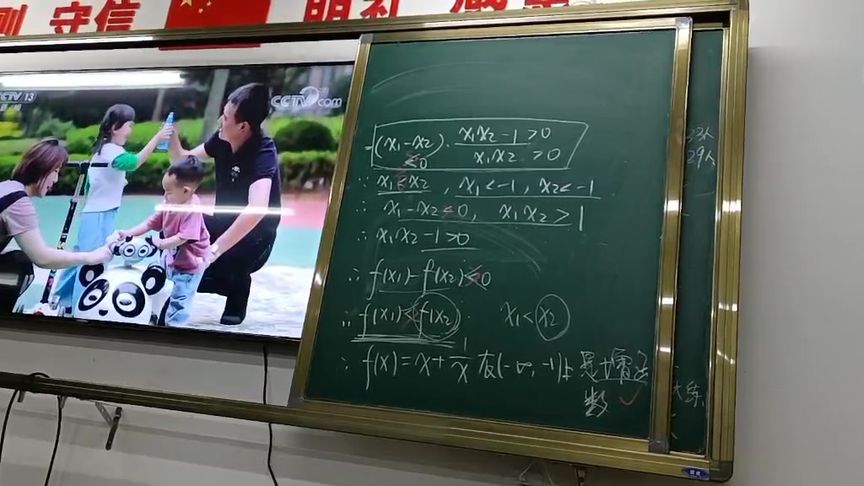 守信
明礼
CCTV 13
CCTV.com
-(x₁-x₂)·(x₁x₂-1>0)/(x₁x₂>0)
<0
∵ x₁<x₂, x₁<-1, x₂<-1
∴ x₁-x₂<0, x₁x₂>1
∴ x₁x₂-1>0
∴ f(x₁)-f(x₂)<0
∴ f(x₁)<f(x₂) x₁<x₂
∴ f(x)=x+1/x 在(-∞,-1)上是增函
数
29人
大练